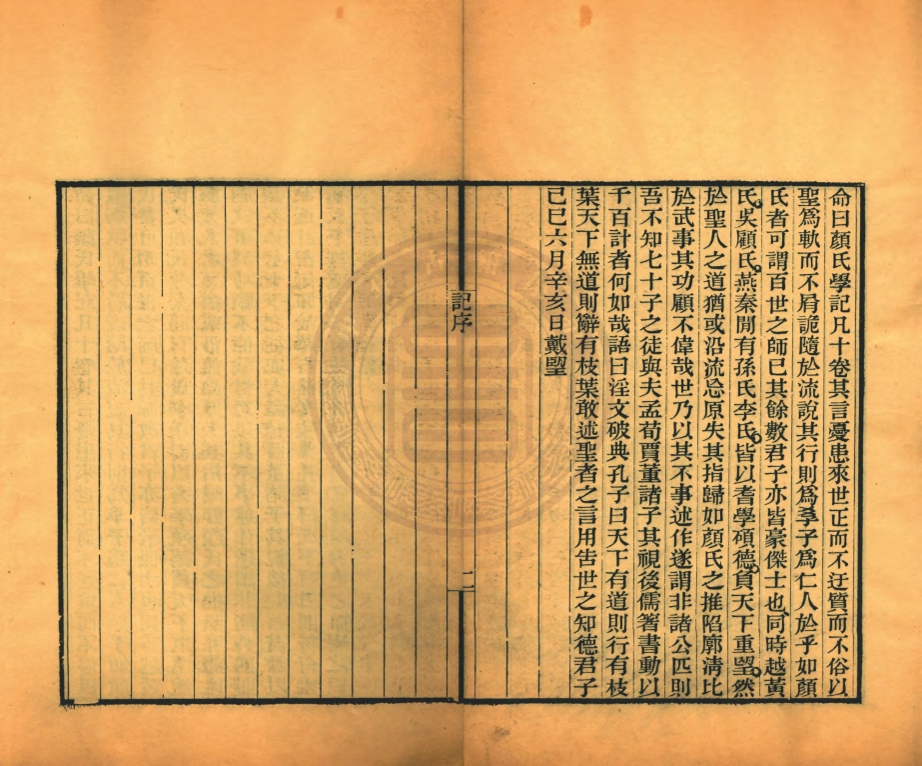 命曰顏氏學記凡十卷其言憂患來世正而不迂質而不俗以
聖爲軌而不屑詭隨於流說其行則爲孝子爲仁人於乎如顏
氏者可謂百世之師已其餘數君子亦皆豪傑士也同時越黃
氏吳顧氏燕秦閒有孫氏李氏皆以耆學碩德負天下重望然
於聖人之道猶或沿流忘原失其指歸如顏氏之推陷廓淸比
於武事其功顧不偉哉世乃以其不事述作遂謂非諸公匹則
吾不知七十子之徒與夫孟荀賈董諸子其視後儒箸書動以
千百計者何如哉語曰淫文破典孔子曰天下有道則行有枝
葉天下無道則辭有枝葉敢述聖者之言用告世之知德君子
己巳六月辛亥日戴望
記序
二